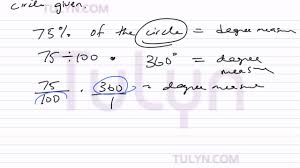 TULYN.COM
circle given
75% of the circle = degree measure
75 ÷ 100 · 360° = degree measure
75/100 · 360/1 = degree measure
TULYN.COM